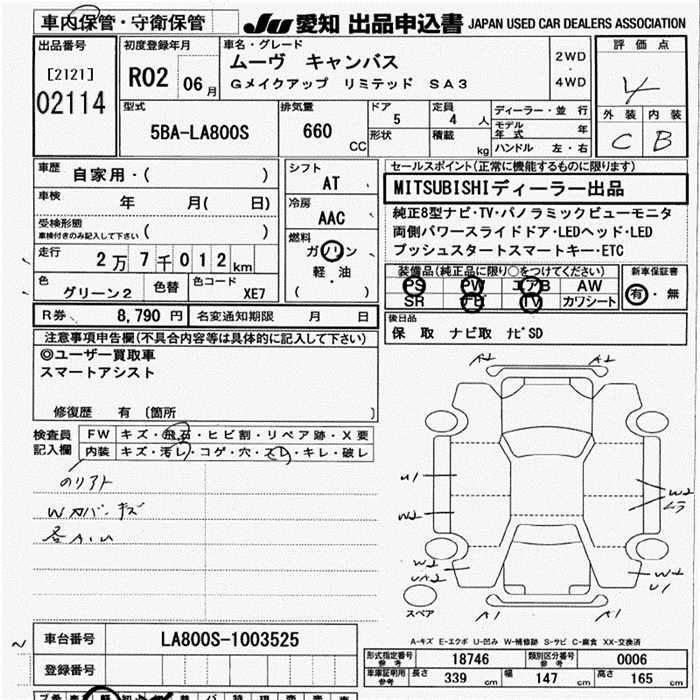 車内保管・守衛保管
JU 愛知 出品申込書 JAPAN USED CAR DEALERS ASSOCIATION
出品番号
[2121]
02114
初度登録年月
R02 06月
車名・グレード
ムーヴ キャンバス
Gメイクアップ リミテッド SA3
2WD
・
4WD
評価点
4
外装 内装
C B
型式
5BA-LA800S
排気量
660 CC
ドア
5
形状
定員
4 人
積載
kg
ディーラー・並行
モデル年式 年
ハンドル 左・右
車歴
自家用・( )
車検
年 月( 日)
受検形態
車検付きのみ記入して下さい ( )
走行
2万7千012km
色
グリーン2
色替
色コード
XE7
シフト
AT
冷房
AAC
燃料
ガソリン
軽・油
( )
セールスポイント(正常に機能するものに限ります)
MITSUBISHIディーラー出品
純正8型ナビ・TV・パノラミックビューモニタ
両側パワースライドドア・LEDヘッド・LED
プッシュスタートスマートキー・ETC
装備品(純正品に限り○をつけてください)
PS PW エアB AW
SR ナビ TV カワシート
新車保証書
有・無
R券 8,790 円
名変通知期限 月 日
後日品
保 取 ナビ取 ナビSD
注意事項申告欄(不具合内容等は具体的に記入して下さい)
◎ユーザー買取車
スマートアシスト
修復歴 有 〔箇所 〕
検査員記入欄
FW キズ・飛石・ヒビ割・リペア跡・X要
内装 キズ・汚レ・コゲ・穴・スレ・キレ・破レ
のリアト
Wカバーキズ
各A.U
A2 A2
U1
W2
W2
ムラ
W2
UA2
W2
U1
A1 A1
スペア
A-キズ E-エクボ U-凹み W-補修跡 S-サビ C-腐食 XX-交換済
車台番号 LA800S-1003525
登録番号
形式指定番号 参考 18746
類別区分番号 参考 0006
車庫証明用 参考 長さ 339 cm 幅 147 cm 高さ 165 cm